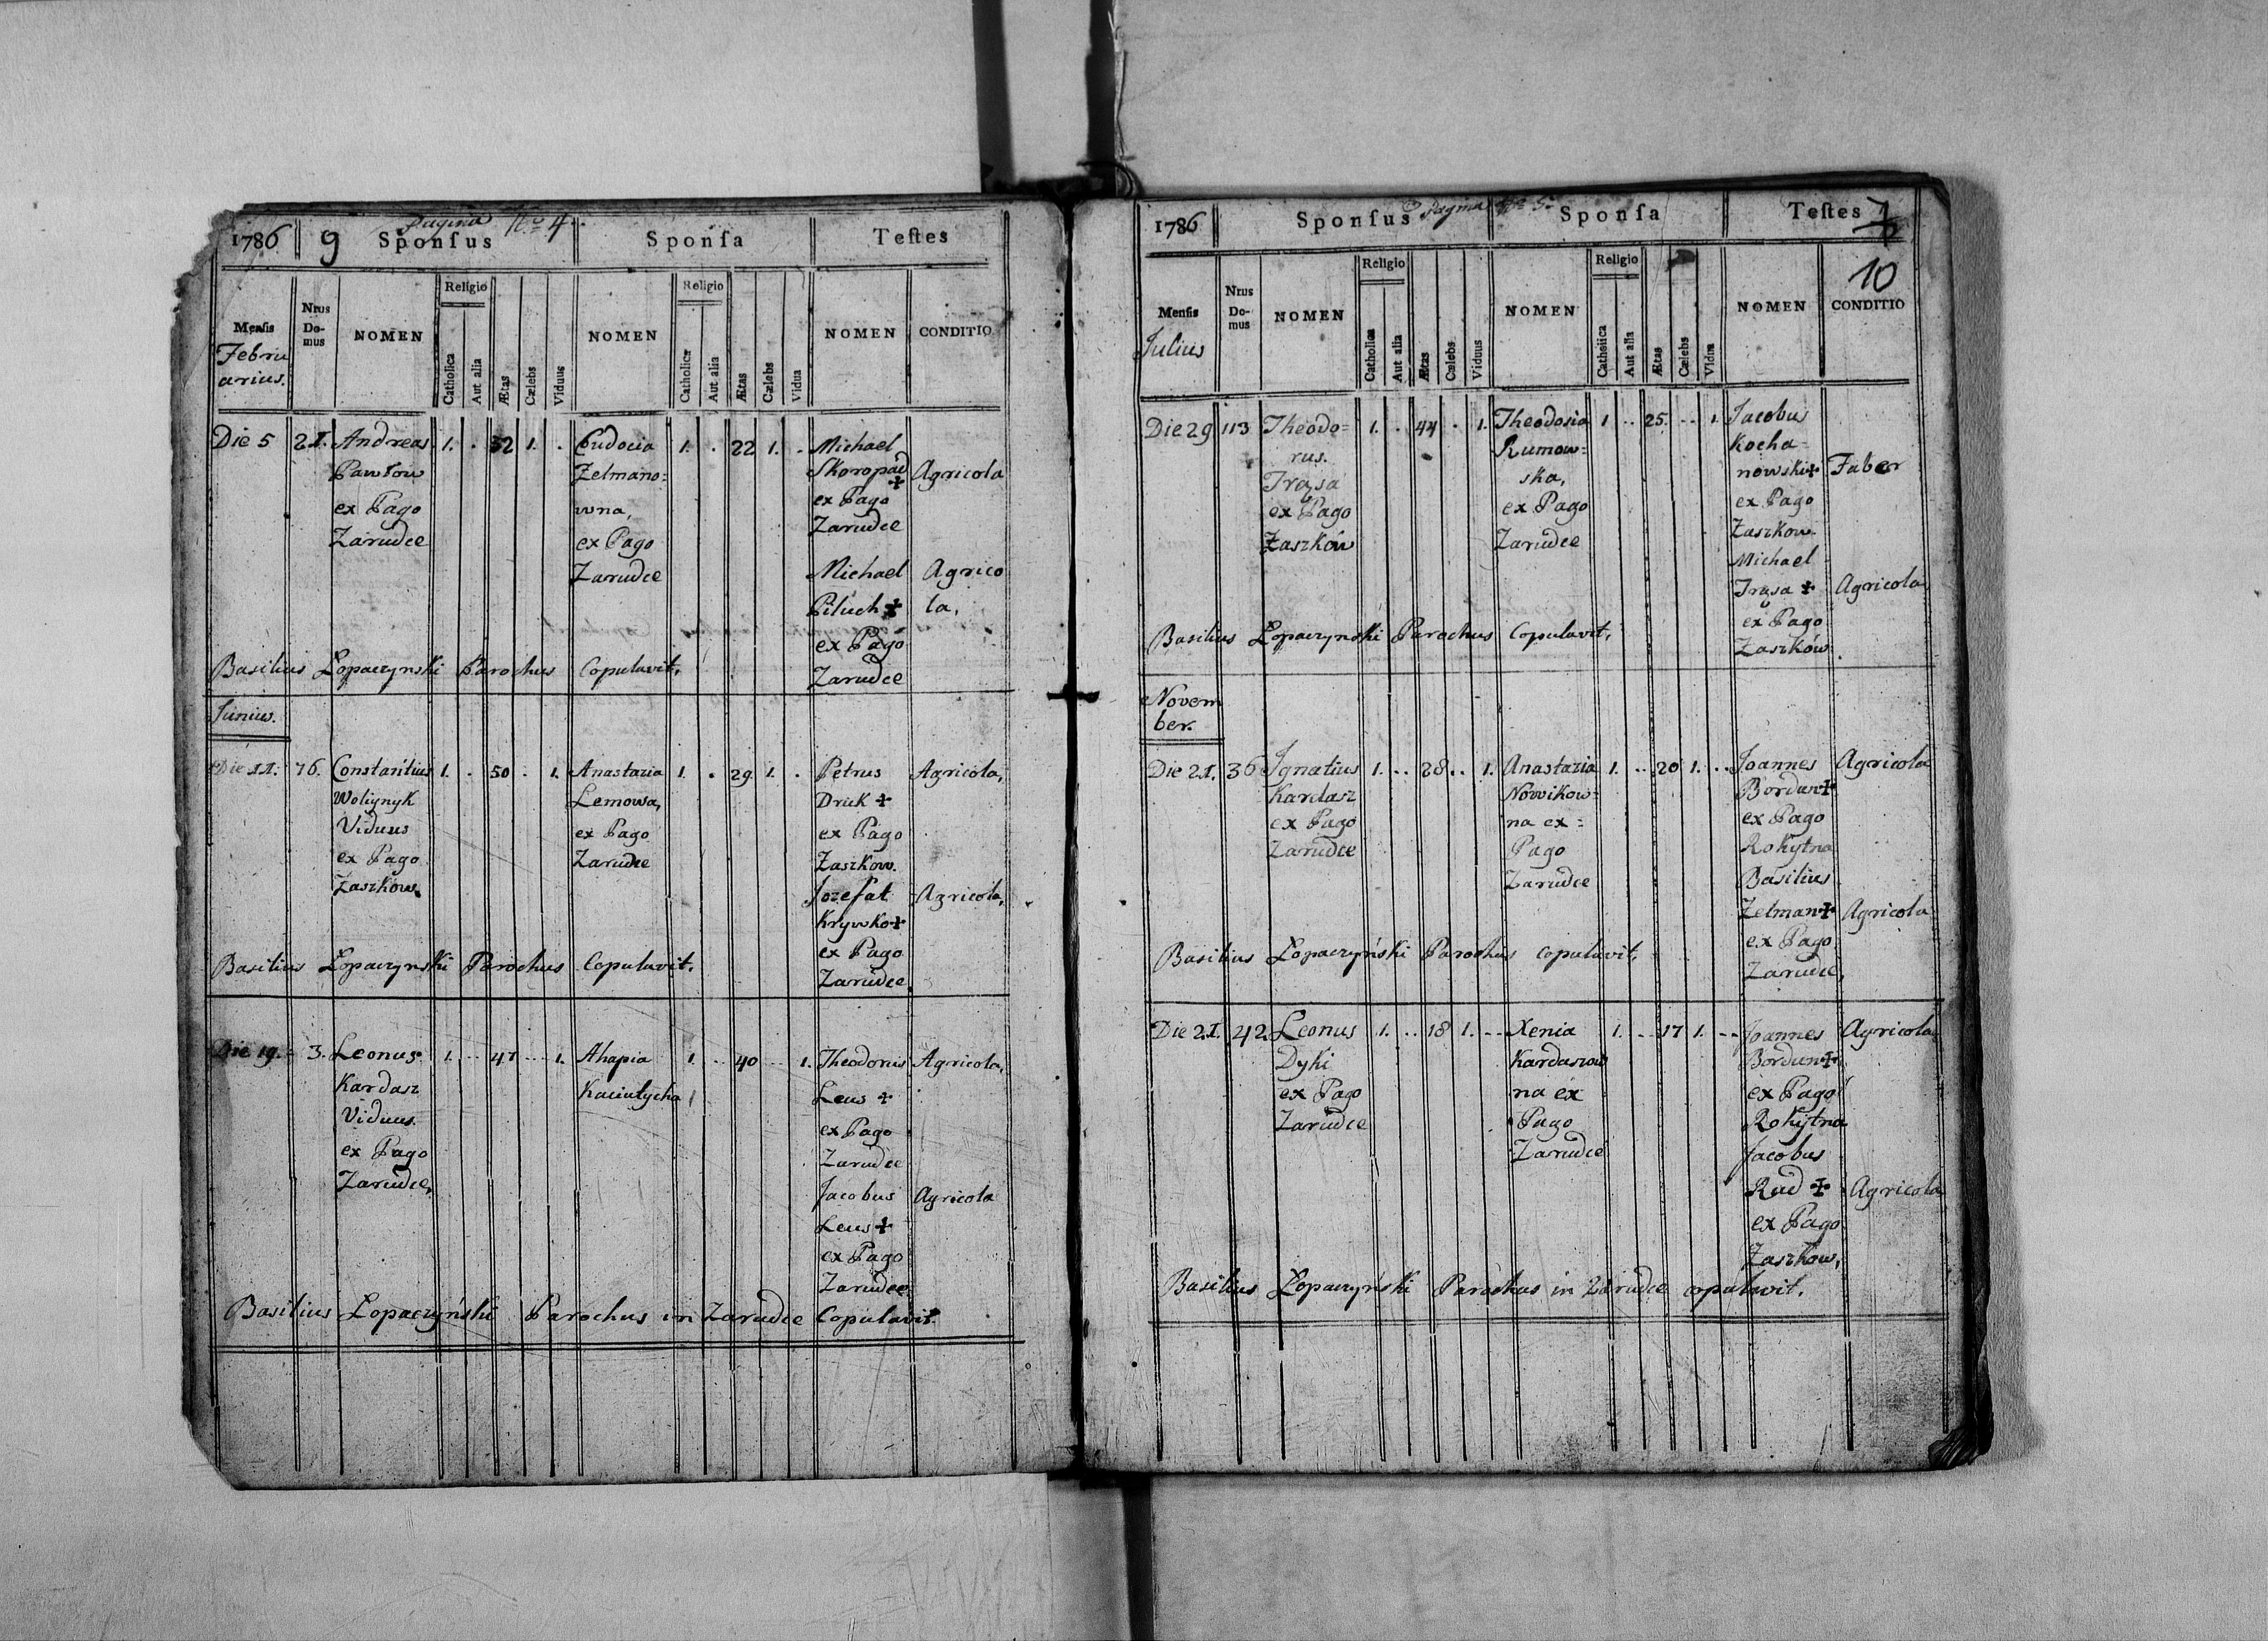 Pagina Nro 4.
1786 9 Sponsus Sponsa Testes
Mensis Nrus Domus NOMEN Religio Catholica Aut alia Ætas Cælebs Viduus NOMEN Religio Catholica Aut alia Ætas Cælebs Vidua NOMEN CONDITIO
Febru
arius.
Die 5 21. Andreas 1. . 32 1. . Eudocia 1. . 22 1. . Michael
Pawłow Zelmano= Skoropad + Agricola
ex Pago wna, ex Pago
Zarudce ex Pago Zarudce
Zarudce Michael Agrico
Piluch + la,
ex Pago
Basilius Łopaczynski Parochus Copulavit, Zarudce
Junius.
Die 11. 76. Constantius 1. . 50 . 1. Anastazia 1. . 29 1. . Petrus Agricola,
Woliynyk Lemowa, Druk +
Viduus ex Pago ex Pago
ex Pago Zarudce Zaszkow.
Zaszkow. Jozefat Agricola,
Krywko +
ex Pago
Basilius Łopaczynski Parochus Copulavit. Zarudce
Die 19. 3. Leonus 1. .. 47 .. 1. Ahapia 1. .. 40 .. 1. Theodorus Agricola,
Kardasz Leus +
Viduus ex Pago
ex Pago Zarudce
Zarudce, Jacobus Agricola
Leus +
ex Pago
Zarudce
Basilius Łopaczyński Parochus in Zarudce Copulavit.
Pagina Nro 5.
1786 Sponsus Sponsa Testes 7
10
Mensis Nrus Domus NOMEN Religio Catholica Aut alia Ætas Cælebs Viduus NOMEN Religio Catholica Aut alia Ætas Cælebs Vidua NOMEN CONDITIO
Julius
Die 29 113 Theodo= 1. . 44 . 1. Theodosia 1 .. 25. .. 1. Jacobus
rus. Rumow= Kocha=
Trąsa ska, nowski + Faber
ex Pago ex Pago ex Pago
Zaszków Zarudce Zaszkow.
Michael
Trąsa + Agricola
ex Pago
Basilius Łopaczynski Parochus Copulavit, Zaszków.
Novem
ber.
Die 21. 36 Ignatius 1. .. 28 .. 1. Anastazia 1. .. 20 1. .. Joannes Agricola
Kardasz Nowikow= Bordun +
ex Pago na ex= ex Pago
Zarudce Pago Rokytna
Zarudce Basilius
Zelman + Agricola
ex Pago
Basilius Łopaczyński Parochus copulavit, Zarudce,
Die 21. 42. Leonus 1. .. 18 1. .. Xenia 1. .. 17 1. .. Joannes Agricola
Dyki Kardaszow Bordun +
ex Pago na ex ex Pago
Zarudce Pago Rokytna
Zarudce Jacobus
Rud + Agricola
ex Pago
Zaszkow,
Basilius Łopaczyński Parochus in Zarudce copulavit.